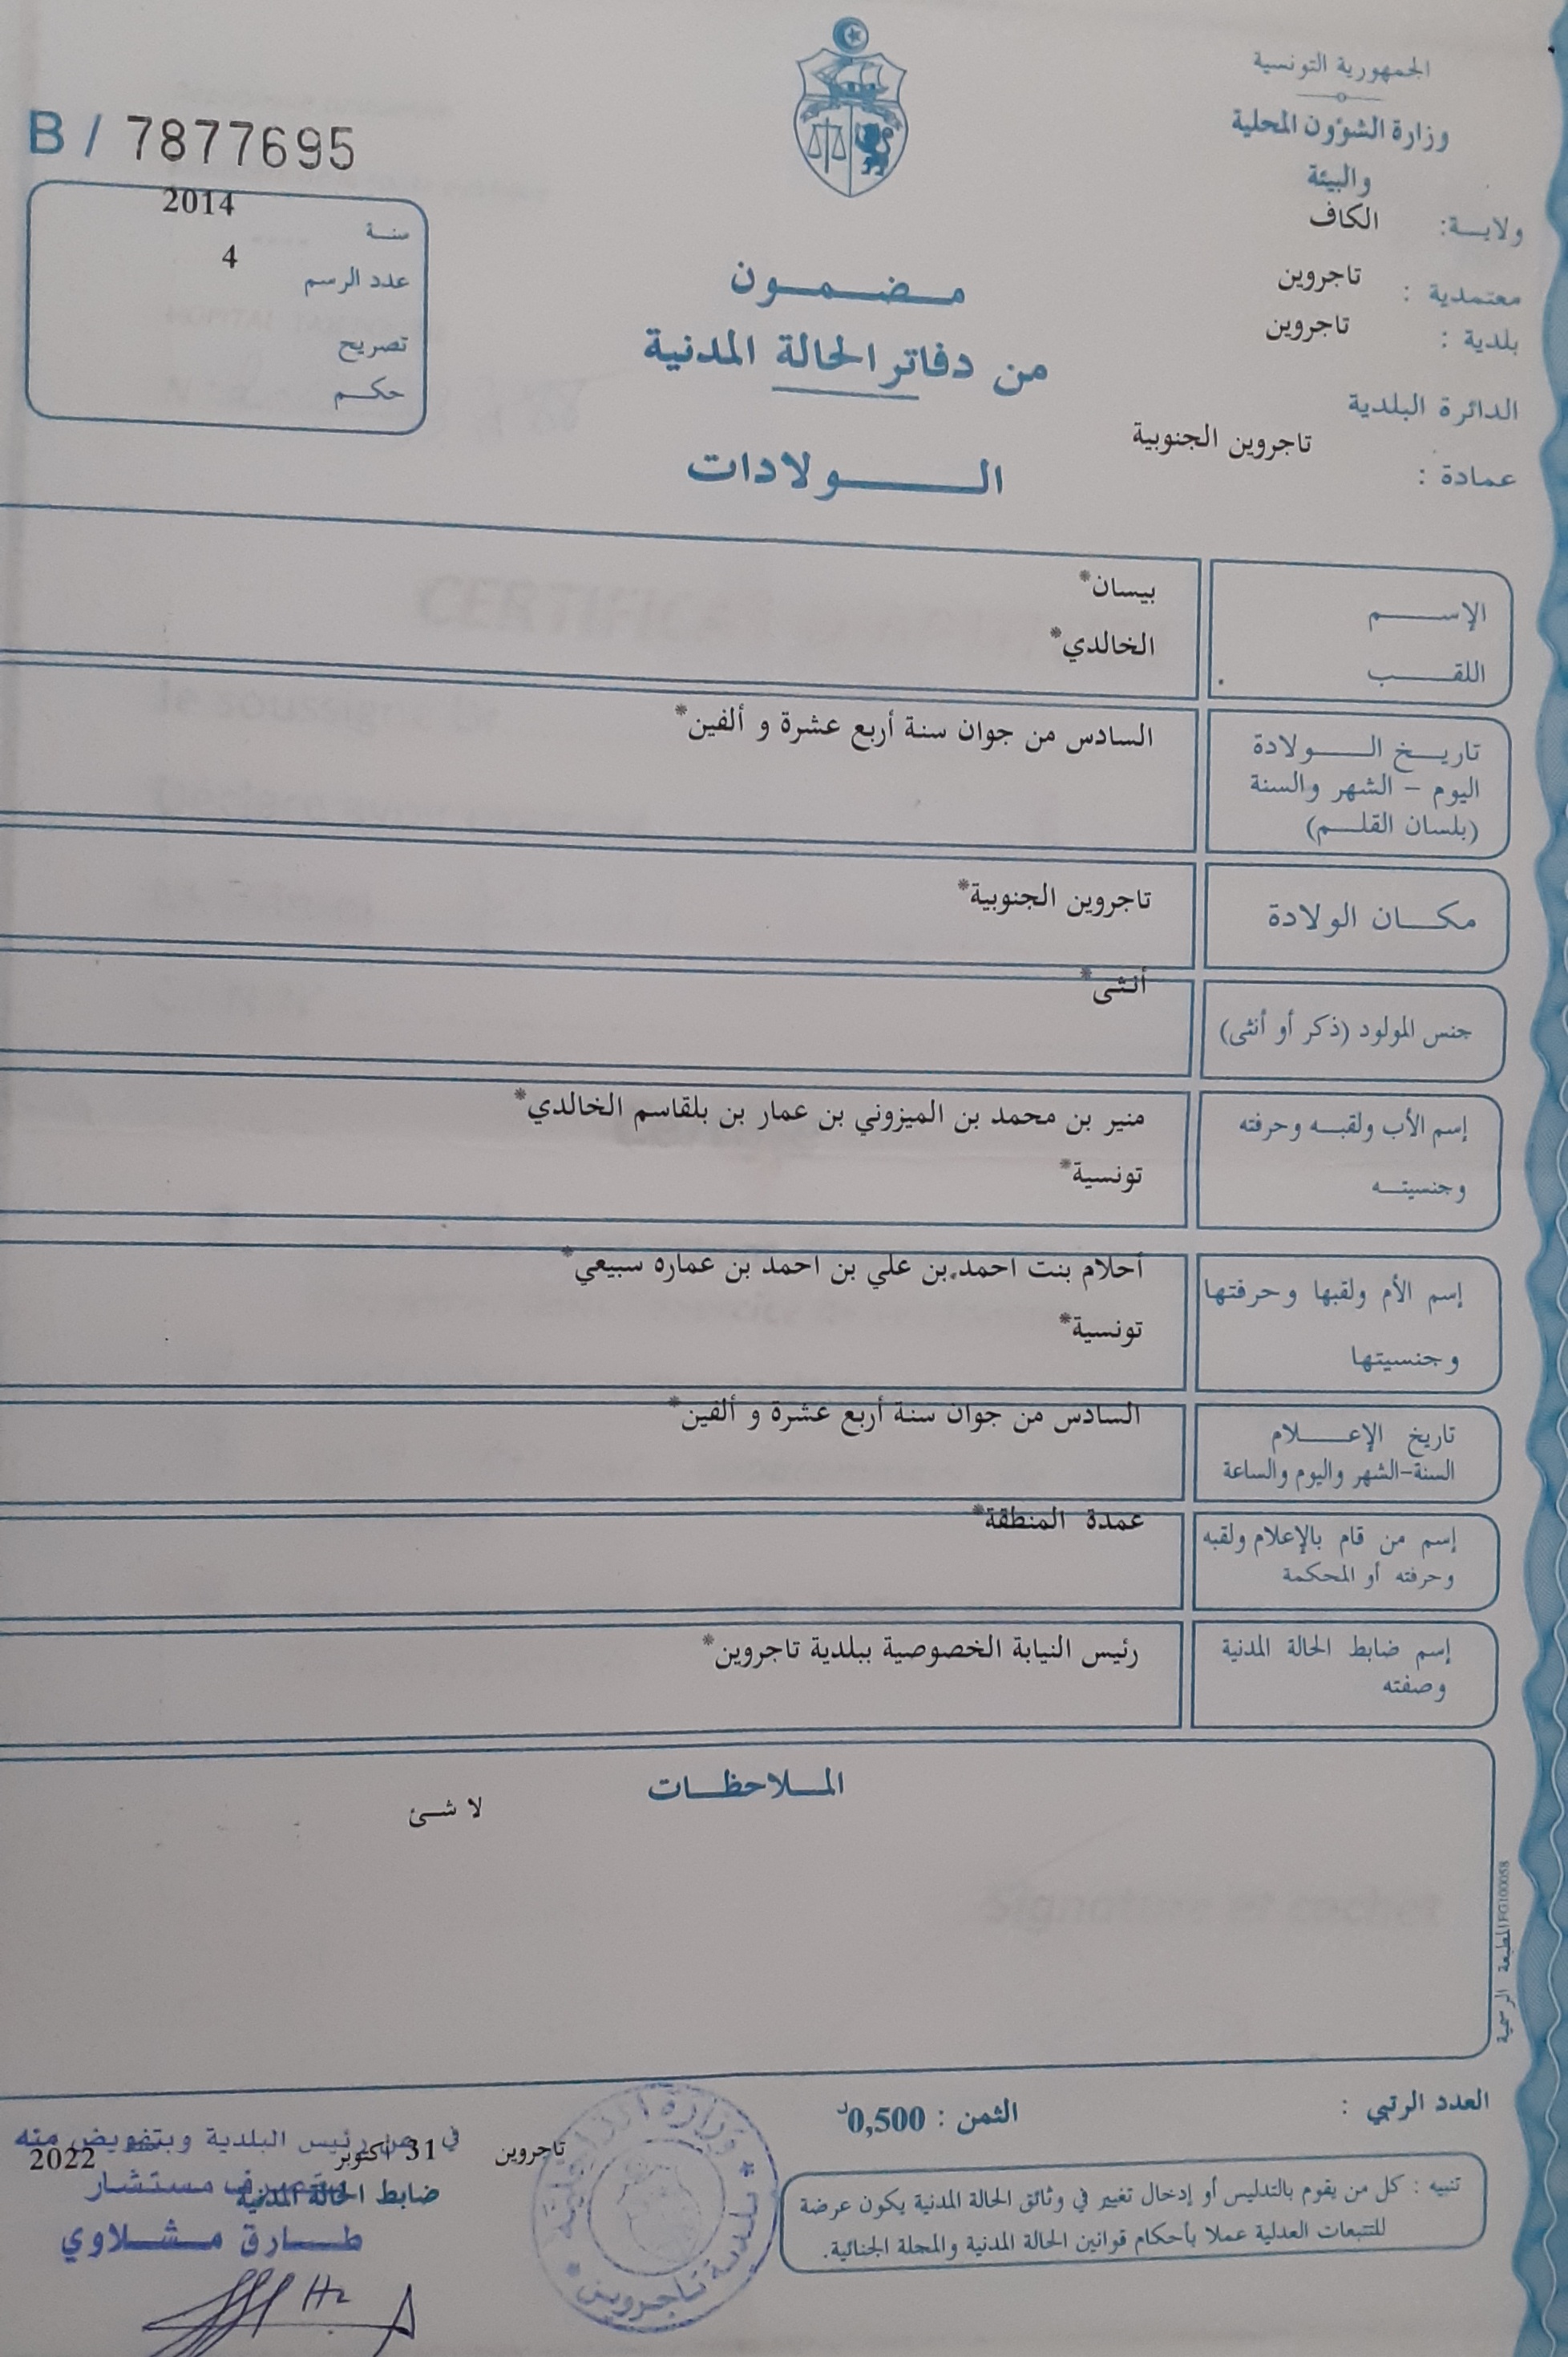 الجمهورية التونسية
وزارة الشؤون المحلية
والبيئة
ولايـة: الكاف
معتمدية : تاجروين
بلدية : تاجروين
الدائرة البلدية
تاجروين الجنوبية
عمادة :
B / 7877695
سنـة 2014
عدد الرسم 4
تصريح
حكـم
مـضـمـون
من دفاتر الحالة المدنية
الـولادات
الإسـم بيسان*
اللقـب الخالدي*
تاريـخ الـولادة السادس من جوان سنة أربع عشرة و ألفين*
اليوم – الشهر والسنة
(بلسان القلـم)
مكـان الولادة تاجروين الجنوبية*
جنس المولود (ذكر أو أنثى) أنثى*
إسم الأب ولقبـه وحرفته منير بن محمد بن الميزوني بن عمار بن بلقاسم الخالدي*
وجنسيتـه تونسية*
إسم الأم ولقبها وحرفتها أحلام بنت احمد بن علي بن احمد بن عماره سبيعي*
وجنسيتها تونسية*
تاريخ الإعـلام السادس من جوان سنة أربع عشرة و ألفين*
السنة-الشهر واليوم والساعة
إسم من قام بالإعلام ولقبه عمدة المنطقة*
وحرفته أو المحكمة
إسم ضابط الحالة المدنية رئيس النيابة الخصوصية ببلدية تاجروين*
وصفته
الملاحظـات
لا شئ
المطبعة الرسمية FG100058
العدد الرتبي :
الثمن : 0,500د
تنبيه : كل من يقوم بالتدليس أو إدخال تغيير في وثائق الحالة المدنية يكون عرضة
للتتبعات العدلية عملا بأحكام قوانين الحالة المدنية والمجلة الجنائية.
بلدية تاجروين
تاجروين في 31 أكتوبر 2022
عن رئيس البلدية وبتفويض منه
ضابط الحالة المدنية
متصرف مستشار
طـارق مـشـلاوي